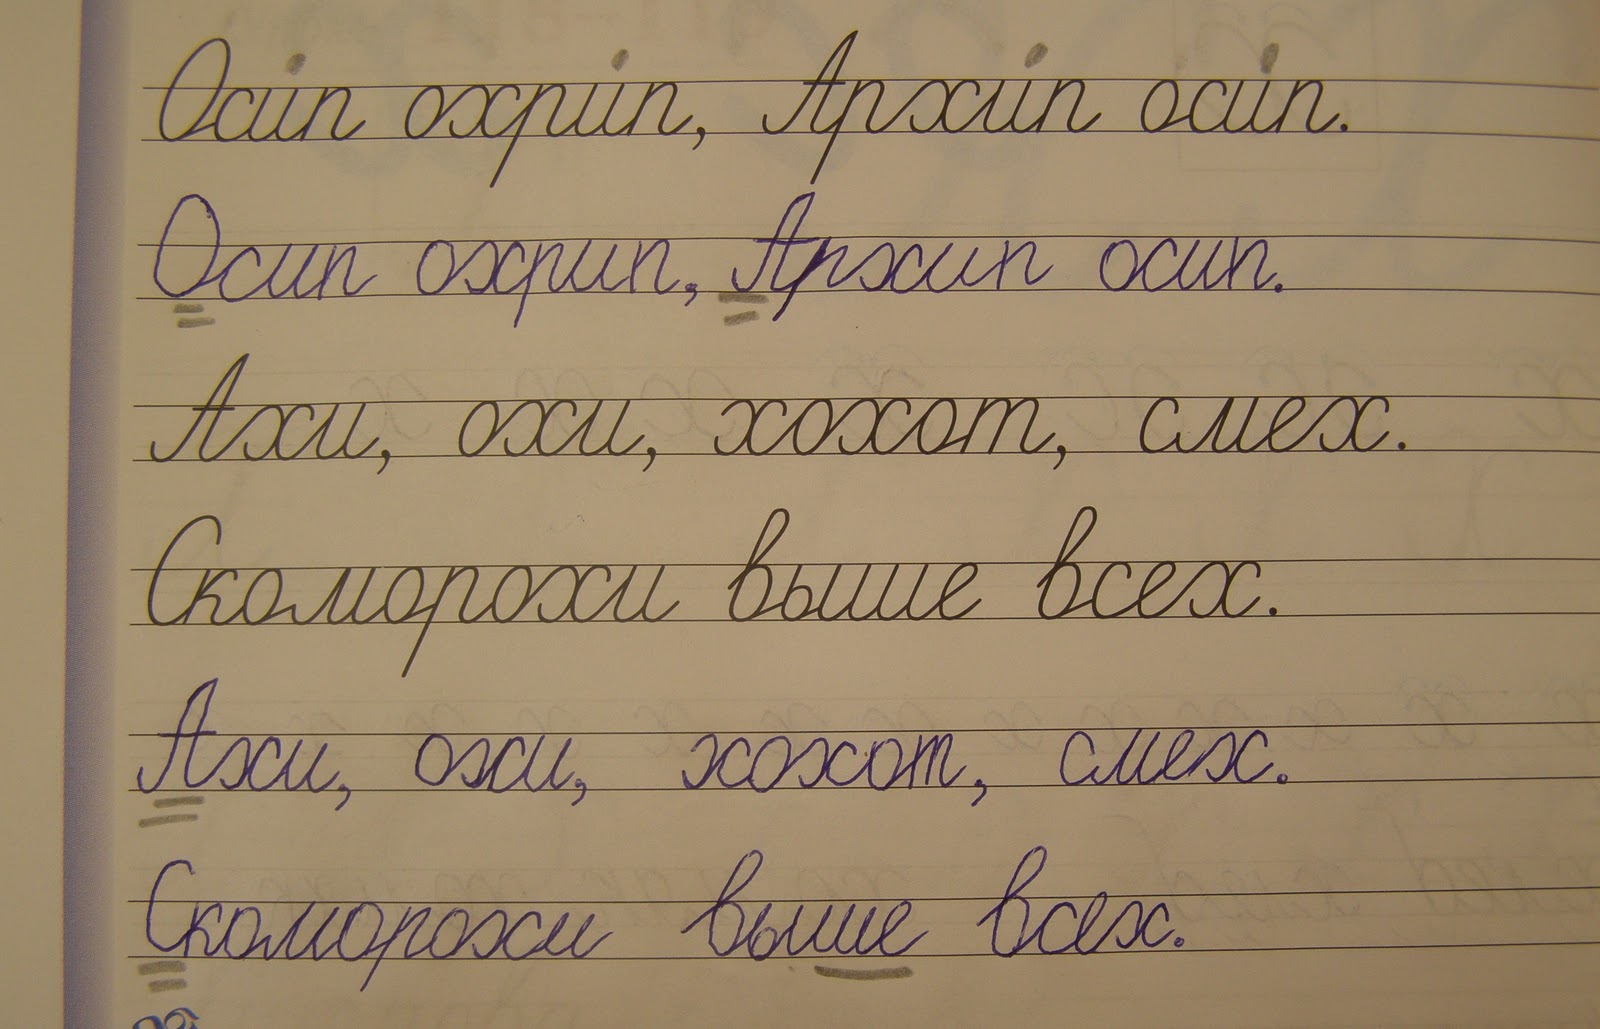 Осип охрип, Архип осип.
Осип охрип, Архип осип.
Ахи, охи, хохот, смех.
Скоморохи выше всех.
Ахи, охи, хохот, смех.
Скоморохи выше всех.